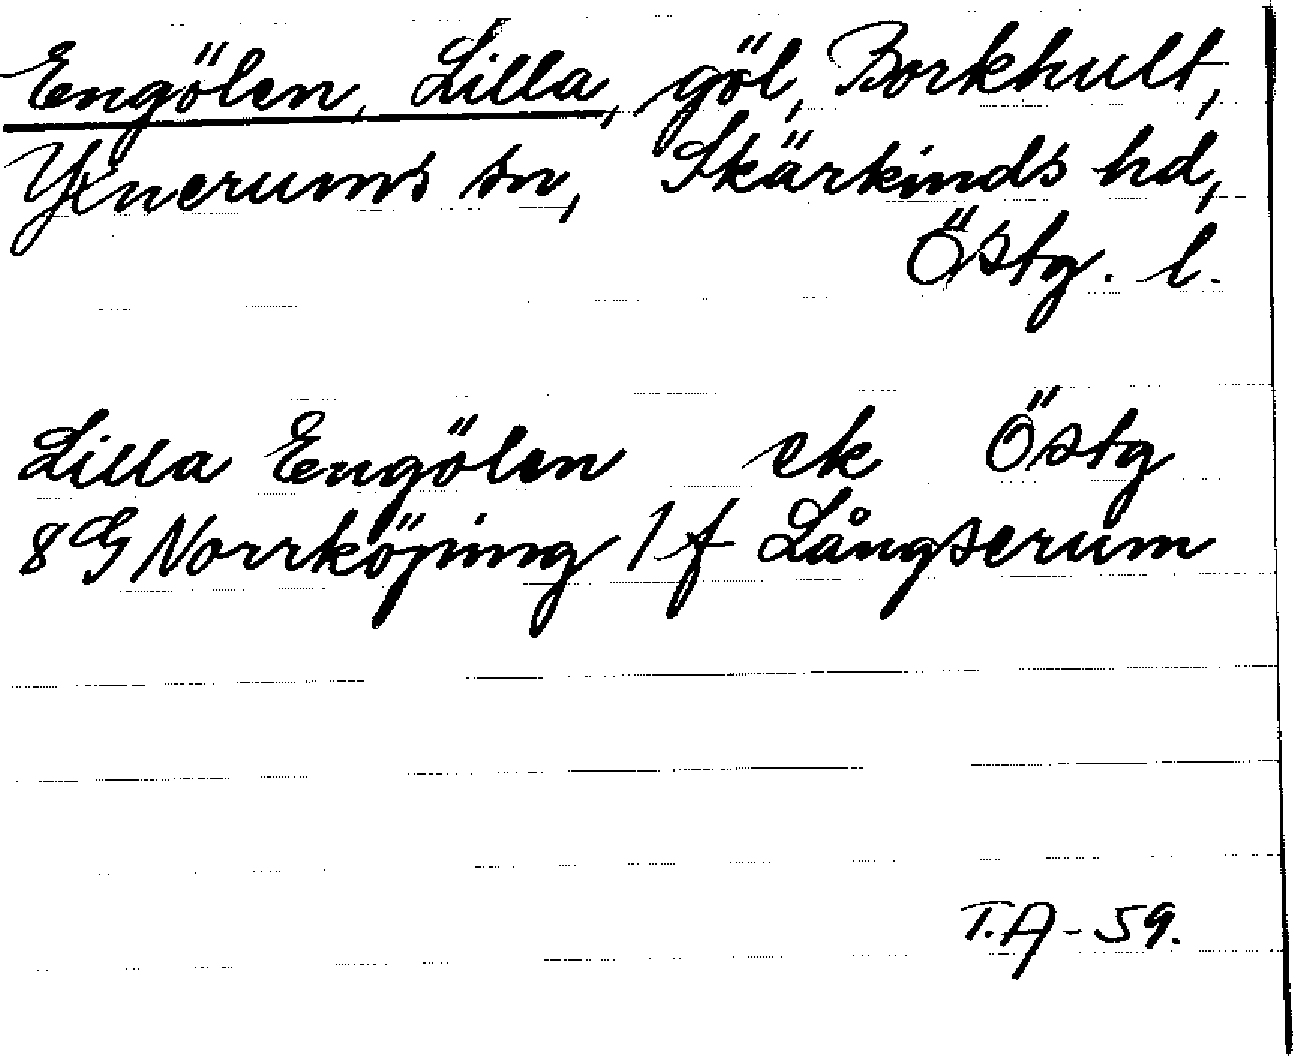 Engölen, Lilla, göl, Borkhult,
Yxnerums sn, Skärkinds hd,
Östg. l.
Lilla Engölen ek Östg
8G Norrköping 1 f Långserum
T.A-59.